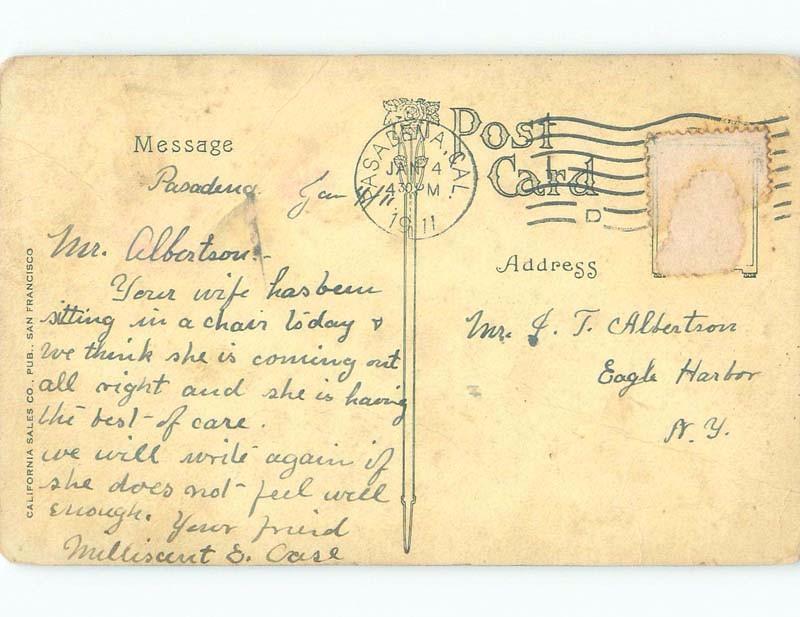 Post
Card
Message
Pasadena. Jan 4/11.
PASADENA, CAL.
JAN 4
430 PM
1911
D
Mr. Albertson:-
Your wife has been
sitting in a chair today &
we think she is coming out
all right and she is having
the best of care.
we will write again if
she does not feel well
enough. Your friend
Millisant E. Case
Address
Mr. J. T. Albertson
Eagle Harbor
N. Y.
CALIFORNIA SALES CO., PUB., SAN FRANCISCO